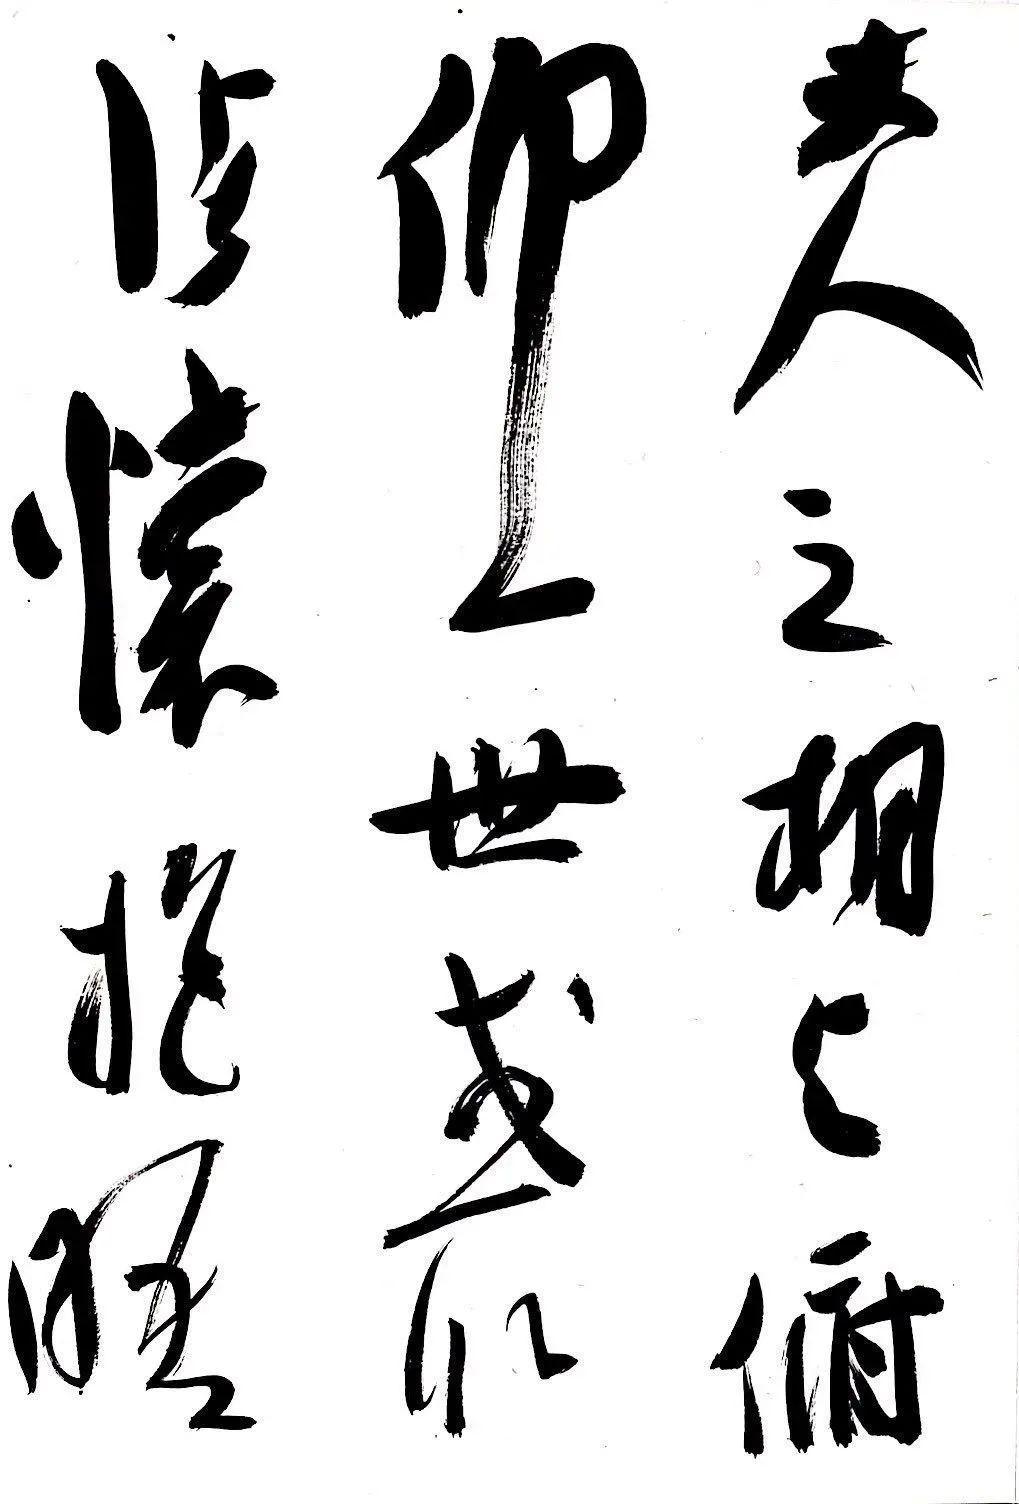 夫人之相與俯
仰一世或取
諸懷抱晤